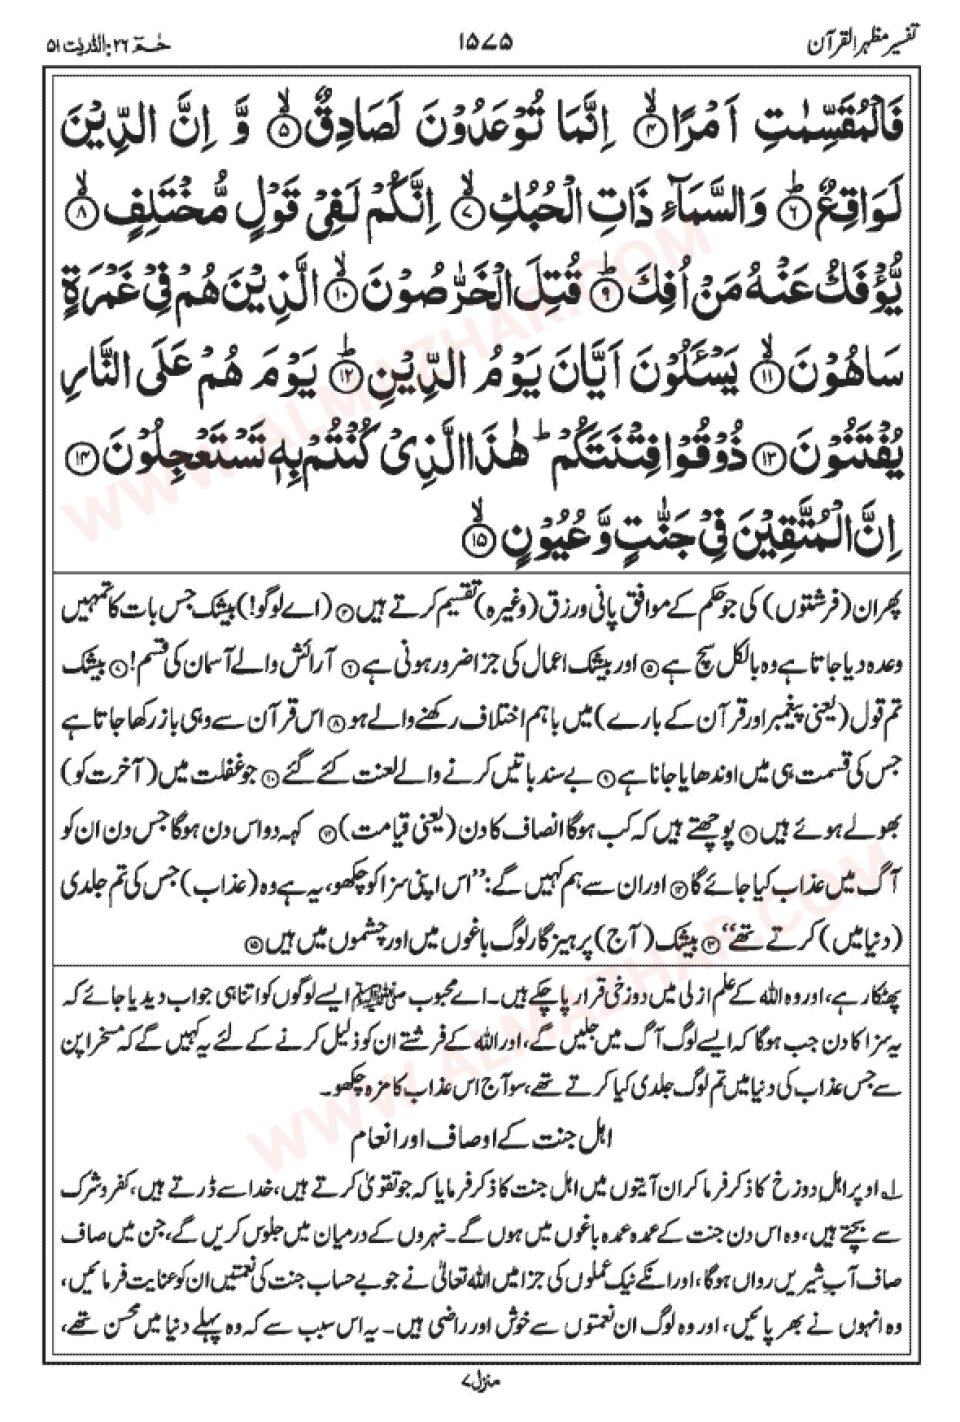 تفسیر مظہر القرآن
۱۵۷۵
حٰمٓ ۲۶: الذّٰریٰت ۵۱
فَالْمُقَسِّمٰتِ اَمْرًا ۙ﴿۴﴾ اِنَّمَا تُوْعَدُوْنَ لَصَادِقٌ ۙ﴿۵﴾ وَّ اِنَّ الدِّيْنَ
لَوَاقِعٌ ؕ﴿۶﴾ وَالسَّمَآءِ ذَاتِ الْحُبُكِ ۙ﴿۷﴾ اِنَّكُمْ لَفِيْ قَوْلٍ مُّخْتَلِفٍ ۙ﴿۸﴾
يُّؤْفَكُ عَنْهُ مَنْ اُفِكَ ؕ﴿۹﴾ قُتِلَ الْخَرّٰصُوْنَ ۙ﴿۱۰﴾ الَّذِيْنَ هُمْ فِيْ غَمْرَةٍ
سَاهُوْنَ ۙ﴿۱۱﴾ يَسْـَٔلُوْنَ اَيَّانَ يَوْمُ الدِّيْنِ ؕ﴿۱۲﴾ يَوْمَ هُمْ عَلَى النَّارِ
يُفْتَنُوْنَ ﴿۱۳﴾ ذُوْقُوْا فِتْنَتَكُمْ ؕ هٰذَا الَّذِيْ كُنْتُمْ بِهٖ تَسْتَعْجِلُوْنَ ﴿۱۴﴾
اِنَّ الْمُتَّقِيْنَ فِيْ جَنّٰتٍ وَّعُيُوْنٍ ۙ﴿۱۵﴾
پھر ان (فرشتوں) کی جو حکم کے موافق پانی و رزق (وغیرہ) تقسیم کرتے ہیں ﴿۴﴾ (اے لوگو!) بیشک جس بات کا تمہیں
وعدہ دیا جاتا ہے وہ بالکل سچ ہے ﴿۵﴾ اور بیشک اعمال کی جزا ضرور ہونی ہے ﴿۶﴾ آرائش والے آسمان کی قسم! ﴿۷﴾ بیشک
تم قول (یعنی پیغمبر اور قرآن کے بارے) میں باہم اختلاف رکھنے والے ہو ﴿۸﴾ اس قرآن سے وہی باز رکھا جاتا ہے
جس کی قسمت ہی میں اوندھایا جانا ہے ﴿۹﴾ بے سند باتیں کرنے والے لعنت کئے گئے ﴿۱۰﴾ جو غفلت میں (آخرت کو)
بھولے ہوئے ہیں ﴿۱۱﴾ پوچھتے ہیں کہ کب ہوگا انصاف کا دن (یعنی قیامت) ﴿۱۲﴾ کہہ دو اس دن ہوگا جس دن ان کو
آگ میں عذاب کیا جائے گا ﴿۱۳﴾ اور ان سے ہم کہیں گے: "اس اپنی سزا کو چکھو، یہ ہے وہ (عذاب) جس کی تم جلدی
(دنیا میں) کرتے تھے" ﴿۱۴﴾ بیشک (آج) پرہیزگار لوگ باغوں میں اور چشموں میں ہیں ﴿۱۵﴾
پھٹکار ہے، اور وہ اللہ کے علم ازلی میں دوزخی قرار پا چکے ہیں۔ اے محبوب ﷺ ایسے لوگوں کو اتنا ہی جواب دیدیا جائے کہ
یہ سزا کا دن جب ہوگا کہ ایسے لوگ آگ میں جلیں گے، اور اللہ کے فرشتے ان کو ذلیل کرنے کے لئے یہ کہیں گے کہ مسخراپن
سے جس عذاب کی دنیا میں تم لوگ جلدی کیا کرتے تھے، سو آج اس عذاب کا مزہ چکھو۔
اہل جنت کے اوصاف اور انعام
۱ اوپر اہل دوزخ کا ذکر فرما کر ان آیتوں میں اہل جنت کا ذکر فرمایا کہ جو تقویٰ کرتے ہیں، خدا سے ڈرتے ہیں، کفر و شرک
سے بچتے ہیں، وہ اس دن جنت کے عمدہ عمدہ باغوں میں ہوں گے۔ نہروں کے درمیان میں جلوس کریں گے، جن میں صاف
صاف آب شیریں رواں ہوگا، اور انکے نیک عملوں کی جزا میں اللہ تعالیٰ نے جو بے حساب جنت کی نعمتیں ان کو عنایت فرمائیں،
وہ انہوں نے بھر پائیں، اور وہ لوگ ان نعمتوں سے خوش اور راضی ہیں۔ یہ اس سبب سے کہ وہ پہلے دنیا میں محسن تھے،
منزل ۷
WWW.ALMAZHAR.COM
WWW.ALMAZHAR.COM